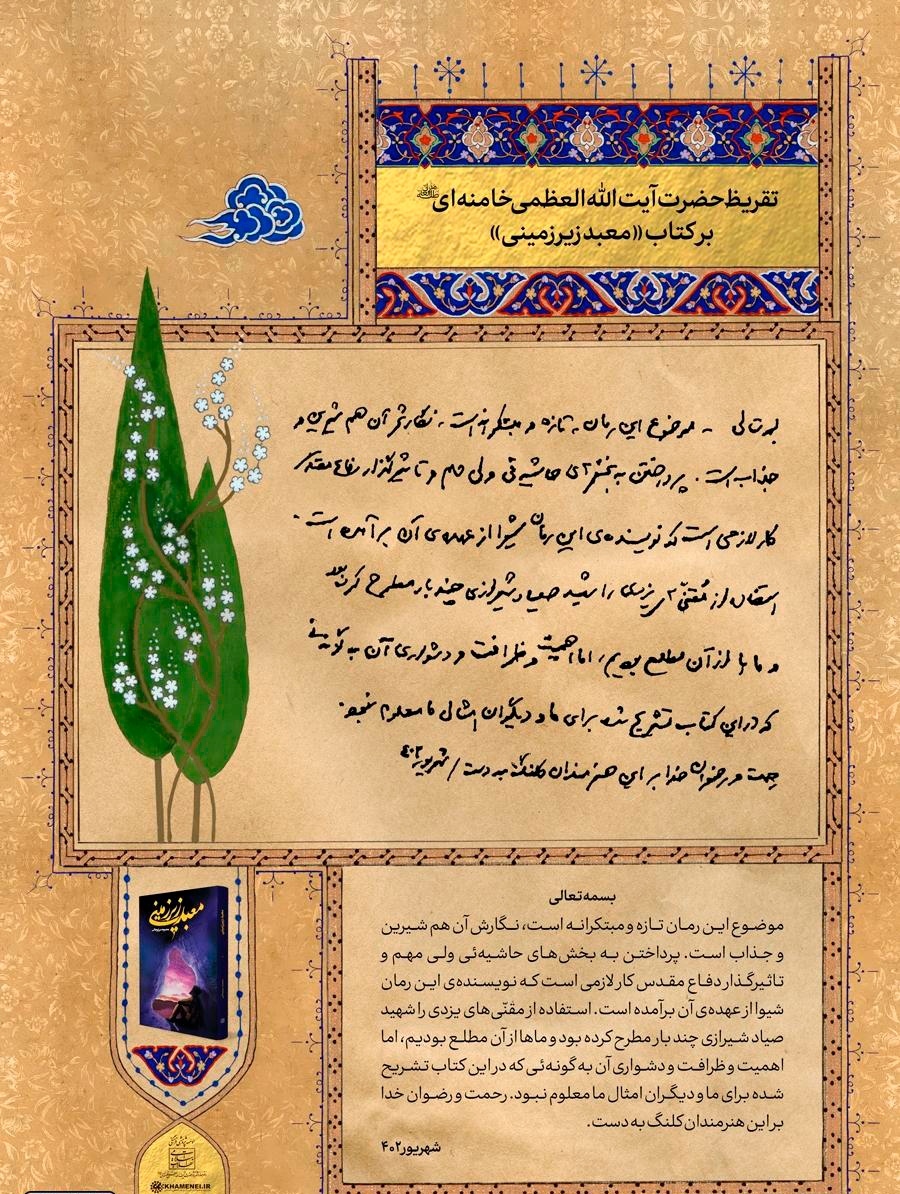 تقریظ حضرت آیت الله العظمی خامنه ای
بر کتاب ((معبد زیرزمینی))
بسمه تعالی - موضوع این رمان، تازه و مبتکرانه است، نگارش آن هم شیرین و
جذاب است. پرداختن به بخش‌های حاشیه‌ئی ولی مهم و تاثیرگذار دفاع مقدس
کار لازمی است که نویسنده‌ی این رمان شیوا از عهده‌ی آن برآمده است.
استفاده از مقنّی‌های یزدی را شهید صیاد شیرازی چند بار مطرح کرده بود
و ماها از آن مطلع بودیم، اما اهمیت و ظرافت و دشواری آن به گونه‌ئی
که در این کتاب تشریح شده برای ما و دیگران امثال ما معلوم نبود.
رحمت و رضوان خدا بر این هنرمندان کلنگ به دست / شهریور ۴۰۲
معبد زیرزمینی
بسمه تعالی
موضوع این رمان تازه و مبتکرانه است، نگارش آن هم شیرین
و جذاب است. پرداختن به بخش‌های حاشیه‌ئی ولی مهم و
تاثیرگذار دفاع مقدس کار لازمی است که نویسنده‌ی این رمان
شیوا از عهده‌ی آن برآمده است. استفاده از مقنّی‌های یزدی را شهید
صیاد شیرازی چند بار مطرح کرده بود و ماها از آن مطلع بودیم، اما
اهمیت و ظرافت و دشواری آن به گونه‌ئی که در این کتاب تشریح
شده برای ما و دیگران امثال ما معلوم نبود. رحمت و رضوان خدا
بر این هنرمندان کلنگ به دست.
شهریور ۴۰۲
KHAMENEI.IR